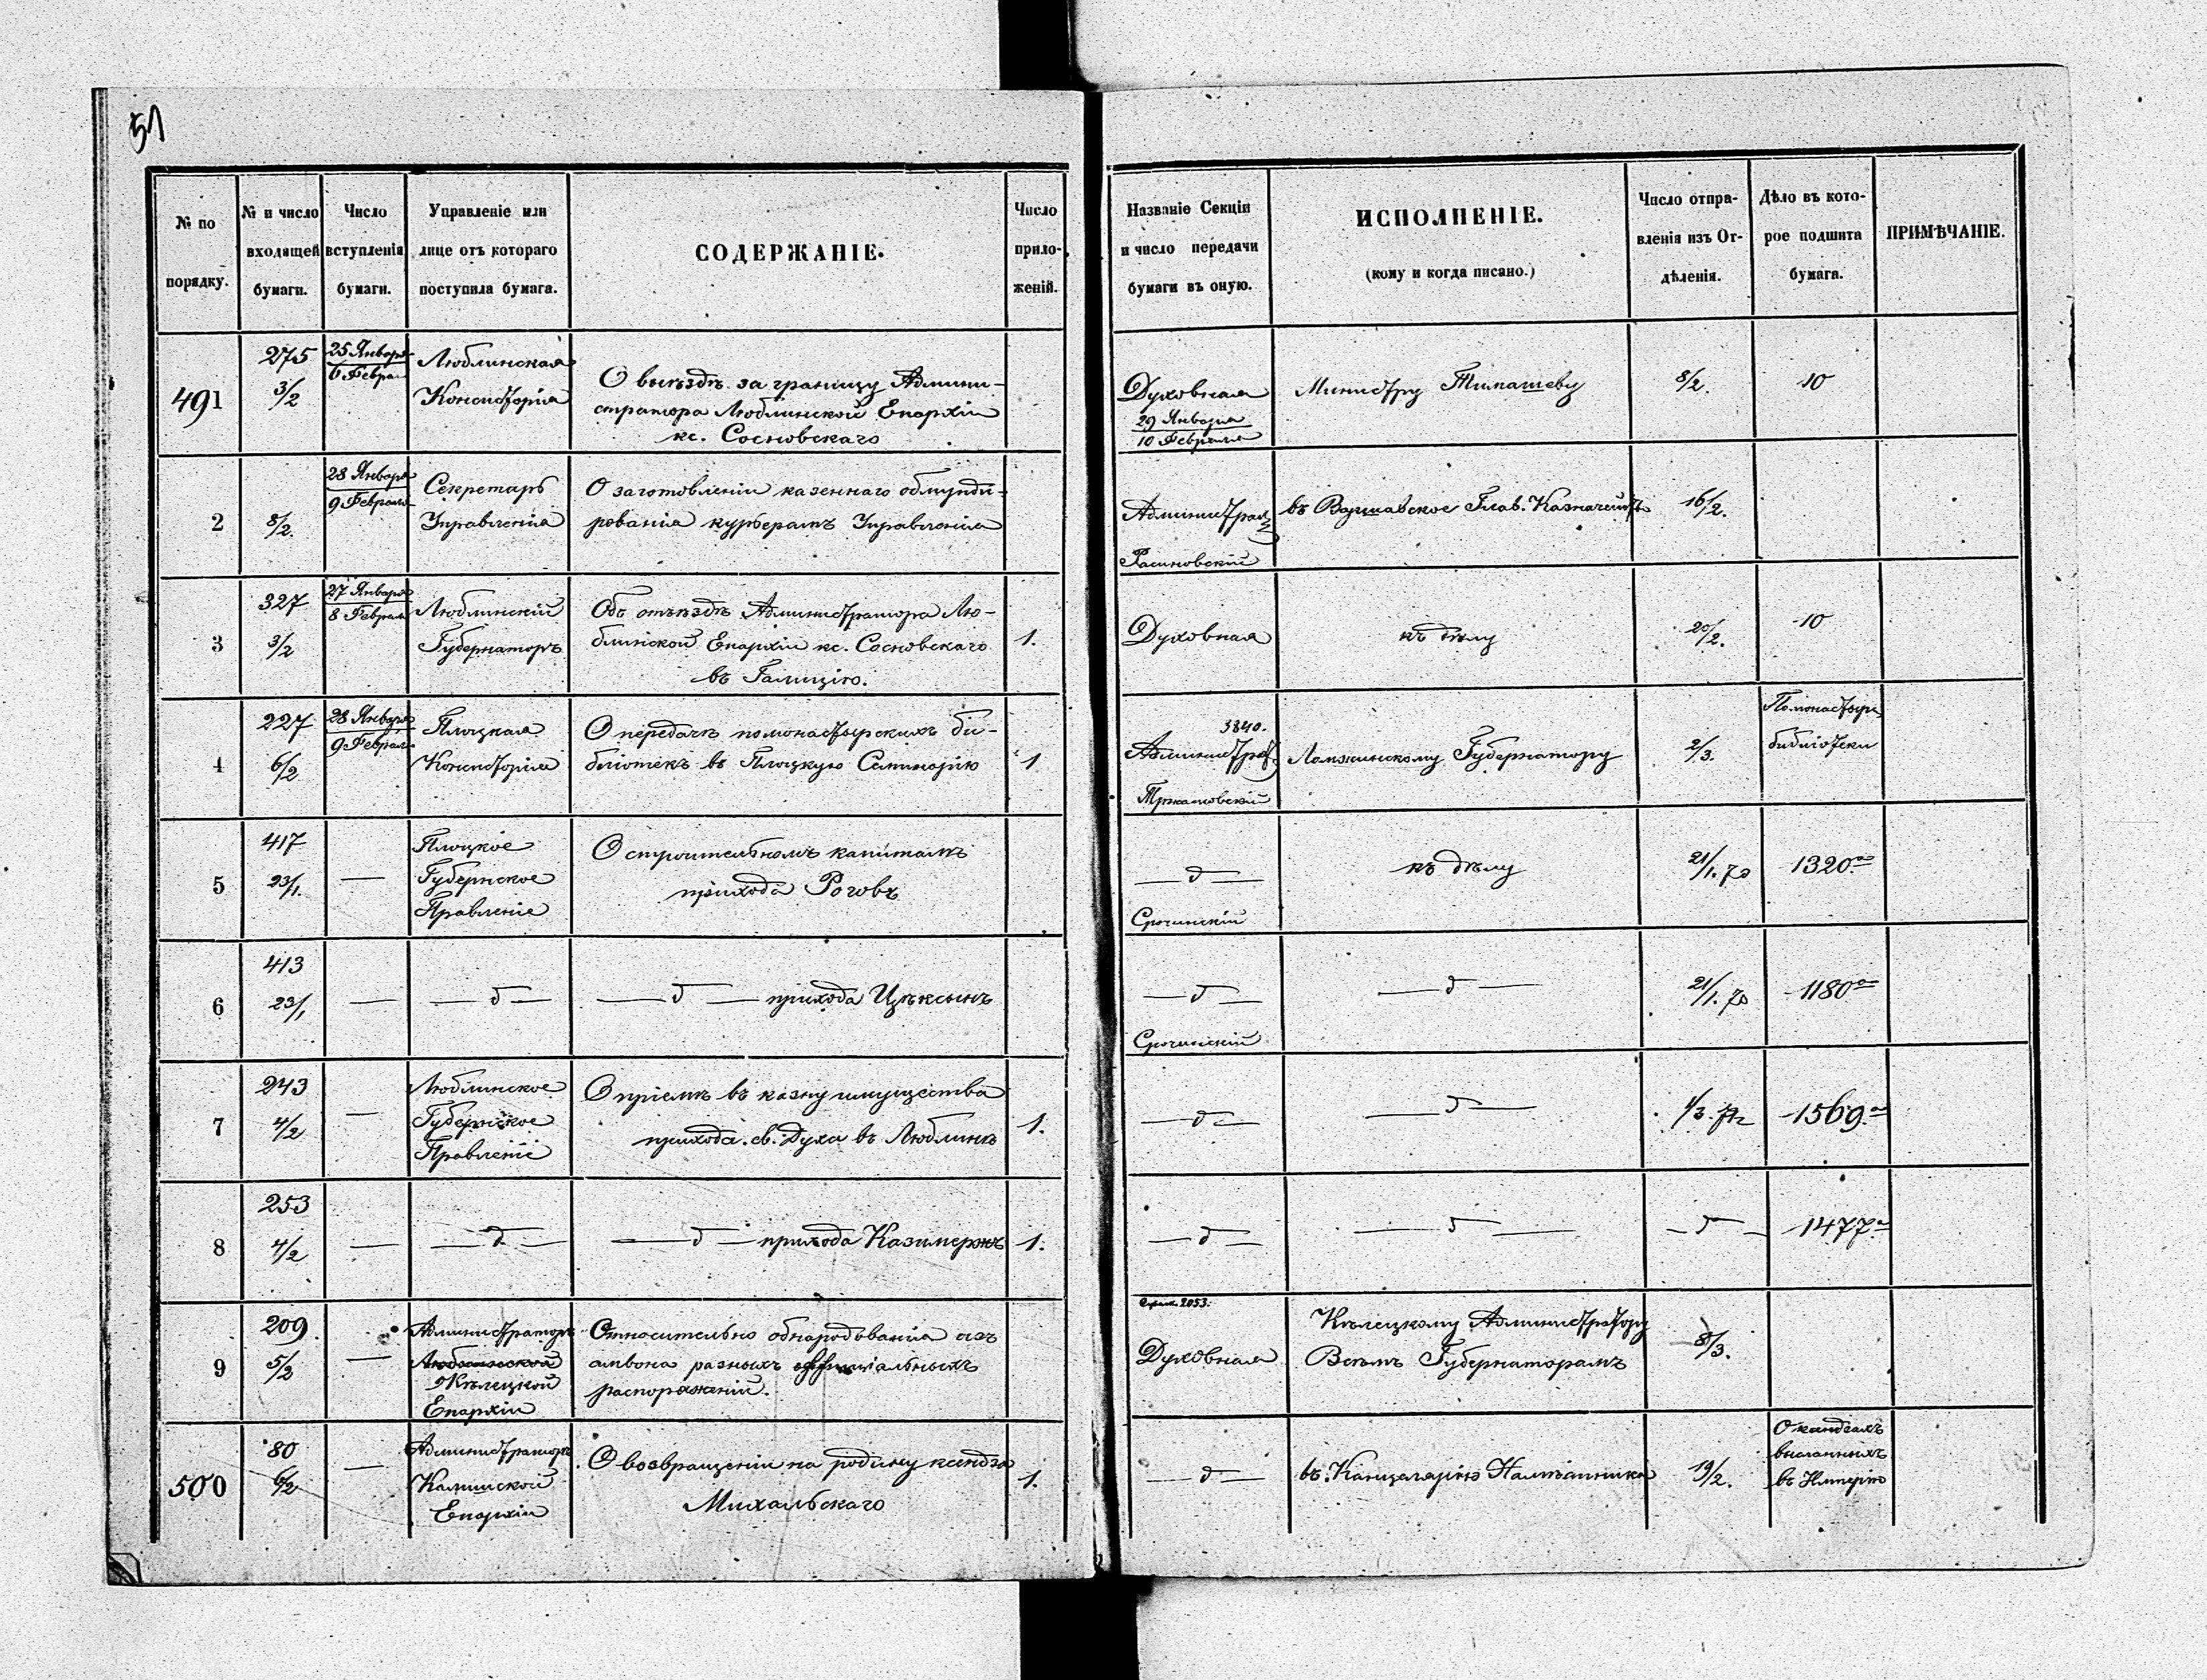 51
№ по порядку.
№ и число входящей бумаги.
Число вступленія бумаги.
Управленіе или лице отъ котораго поступила бумага.
СОДЕРЖАНІЕ.
Число приложеній.
Названіе Секціи и число передачи бумаги въ оную.
ИСПОЛНЕНІЕ.
(кому и когда писано.)
Число отправленія изъ Отдѣленія.
Дѣло въ которое подшита бумага.
ПРИМѢЧАНІЕ.
491
275
3/2
25 Января
6 Феврал
Люблинская
Консисторія
О выѣздѣ за границу Админи-
стратора Люблинской Епархіи
кс. Сосновскаго
Духовная
29 Января
10 Февраля
Министру Тимашеву
8/2.
10
2
8/2.
28 Января
9 Феврал
Секретарь
Управленія
О заготовленіи казеннаго обмунди-
рованія курьерамъ Управленія
въ Варшавское Глав. Казначейство
16/2.
3
327
3/2
27 Января
8 Феврал
Люблинскій
Губернаторъ
Объ отъѣздѣ Администратора Лю-
блинской Епархіи кс. Сосновскаго
въ Галицію.
1.
Духовная
къ дѣлу
20/2.
10
4
227
6/2
28 Января
9 Феврал
Плоцкая
Консисторія
О передачѣ помонастырскихъ би-
бліотекъ въ Плоцкую Семинарію
1
3840.
Администрат
Ломжинскому Губернатору
2/3.
Помонастыр
библіотеки
5
417
23/1.
—
Плоцкое
Губернское
Правленіе
О строительномъ капиталѣ
прихода Роговъ
— д —
Срочинскій
къ дѣлу
21/1. 70
1320.
6
413
23/1
—
— д —
— д — прихода Цѣксынъ
— д —
Срочинскій
— д —
21/1. 70
1180
7
243
4/2
—
Люблинское
Губернское
Правленіе
О пріемѣ въ казну имущества
прихода св. Духа въ Люблинѣ
1.
— д —
— д —
1569.
8
253
4/2
—
— д —
— д — прихода Казимержъ
1.
— д —
— д —
— д —
1477.
9
209
5/2
—
Администраторъ
Люблинской
Кѣлецкой
Епархіи
Относительно обнародованія изъ
амвона разныхъ оффиціальныхъ
распоряженій.
2053.
Духовная
Кѣлецкому Администратору
Всѣмъ Губернаторамъ
8/3.
500
80
6/2
—
Администраторъ
Калишской
Епархіи
О возвращеніи на родину ксендза
Михальскаго
1.
— д —
въ Канцелярію Намѣстника
19/2.
О ксендзахъ
высланныхъ
въ Имперію